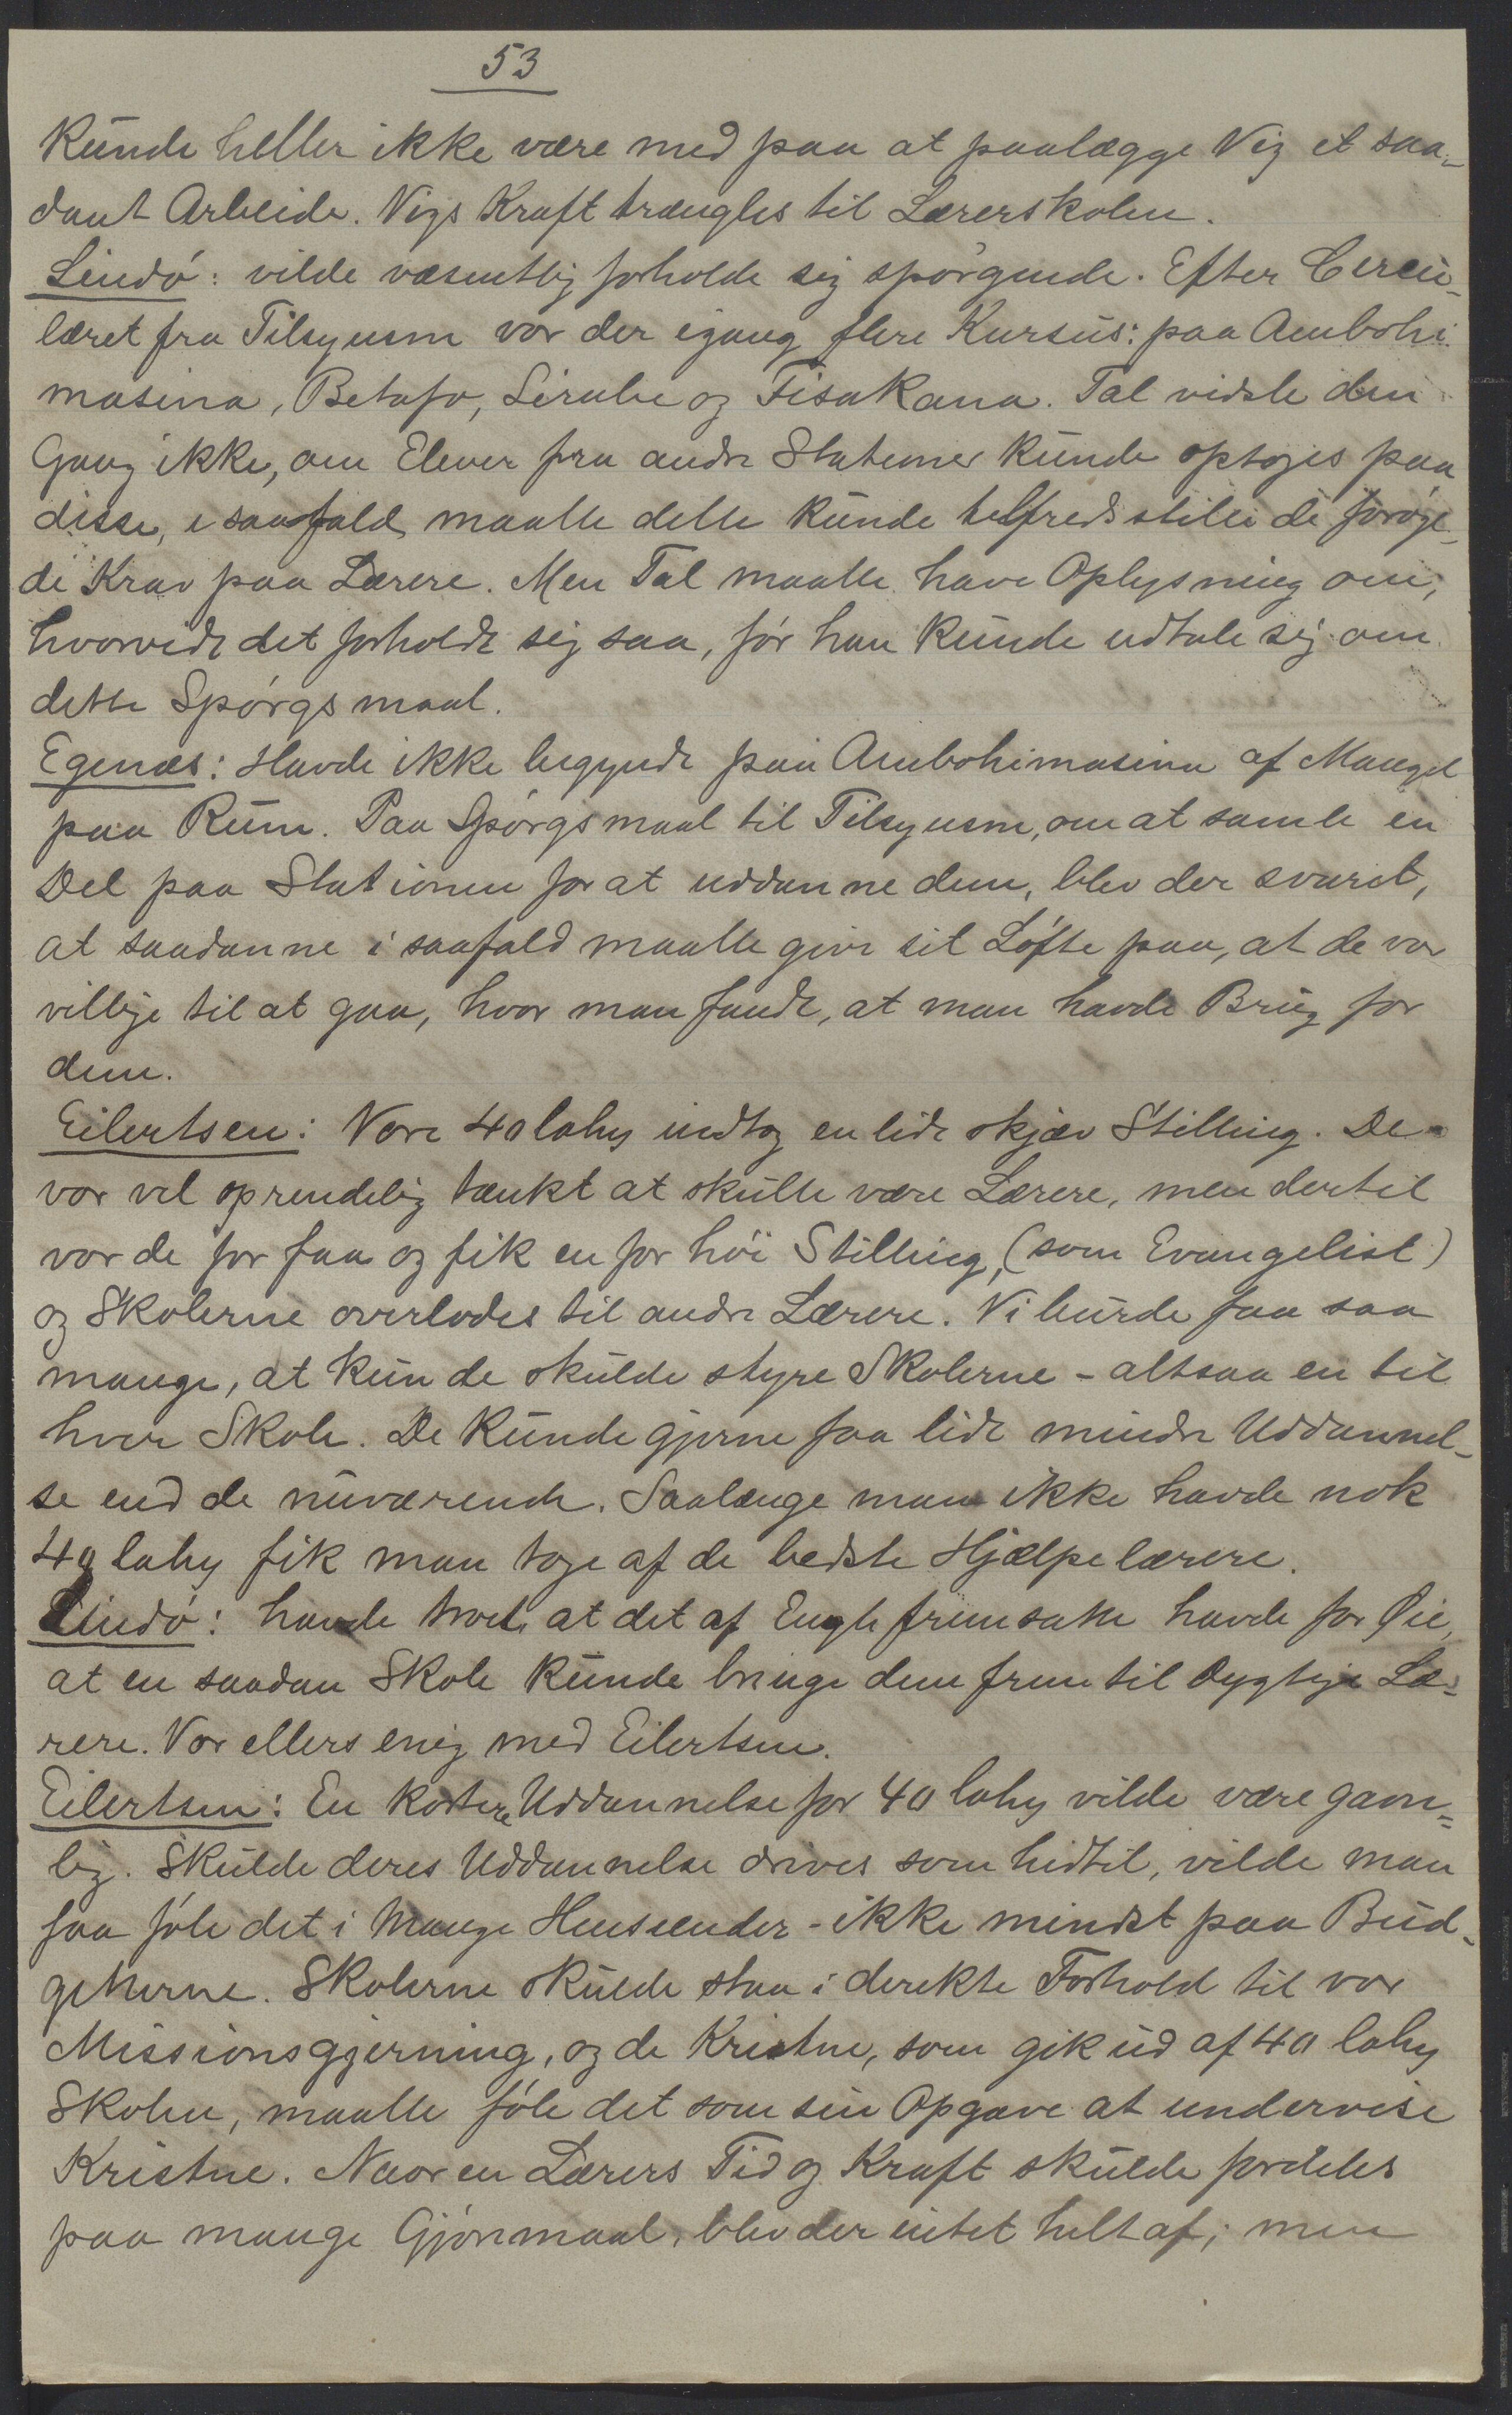 53
kunde heller ikke være med paa at paalægge Vig et saa-
dant Arbeide. Vigs Kraft trængtes til Lærerskolen.
Lindø: vilde væsentlig forholde sig spørgende. Efter Circu-
læret fra Tilsynsm var der igang flere Kursus: paa Ambohi
masina, Betafo, Sirabe og Fisakana. Tal vidste den
Gang ikke, om Elever fra andre Stationer kunde optages paa
disse, i saafald maatte dette kunde tilfredsstille de forøge-
de Krav paa Lærere. Men Tal maatte have Oplysning om,
hvorvidt det forholdt sig saa, før han kunde udtale sig om
dette Spørgsmaal.
Egenæs: Havde ikke begyndt paa Ambohimasina af Mangel
paa Rum. Paa Spørgsmaal til Tilsynsm, om at samle en
Del paa Stationen for at uddanne dem, blev der svaret,
at saadanne i saafald maatte give sit Løfte paa, at de var
villige til at gaa, hvor man fandt, at man havde Brug for
dem.
Eilertsen: Vore 40 lahy indtog en lidt skjæv Stilling. De
var vel oprindelig tænkt at skulle være Lærere, men dertil
var de for faa og fik en for høi Stilling, (som Evangelist)
og Skolerne overlodes til andre Lærere. Vi burde faa saa
mange, at kun de skulde styre Skolerne - altsaa en til
hver Skole. De kunde gjerne faa lidt mindre Uddannel-
se end de nuværende. Saalænge man ikke havde nok
40 lahy fik man tage af de bedste Hjælpelærere.
Lindø: havde troet, at det af Engh fremsatte havde for Øie,
at en saadan Skole kunde bringe dem frem til dygtige Læ-
rere. Var ellers enig med Eilertsen.
Eilertsen: En kortere Uddannelse for 40 lahy vilde være gavn-
lig. Skulde deres Uddannelse drives som hidtil, vilde man
faa føle det i mange Henseender - ikke mindst paa Bud-
getterne. Skolerne skulde staa i direkte Forhold til vor
Missionsgjerning, og de Kristne, som gik ud af 40 lahy
Skolen, maatte føle det som sin Opgave at undervise
Kristne. Naar en Lærers Tid og Kraft skulde fordeles
paa mange Gjøremaal, blev der intet helt af; men